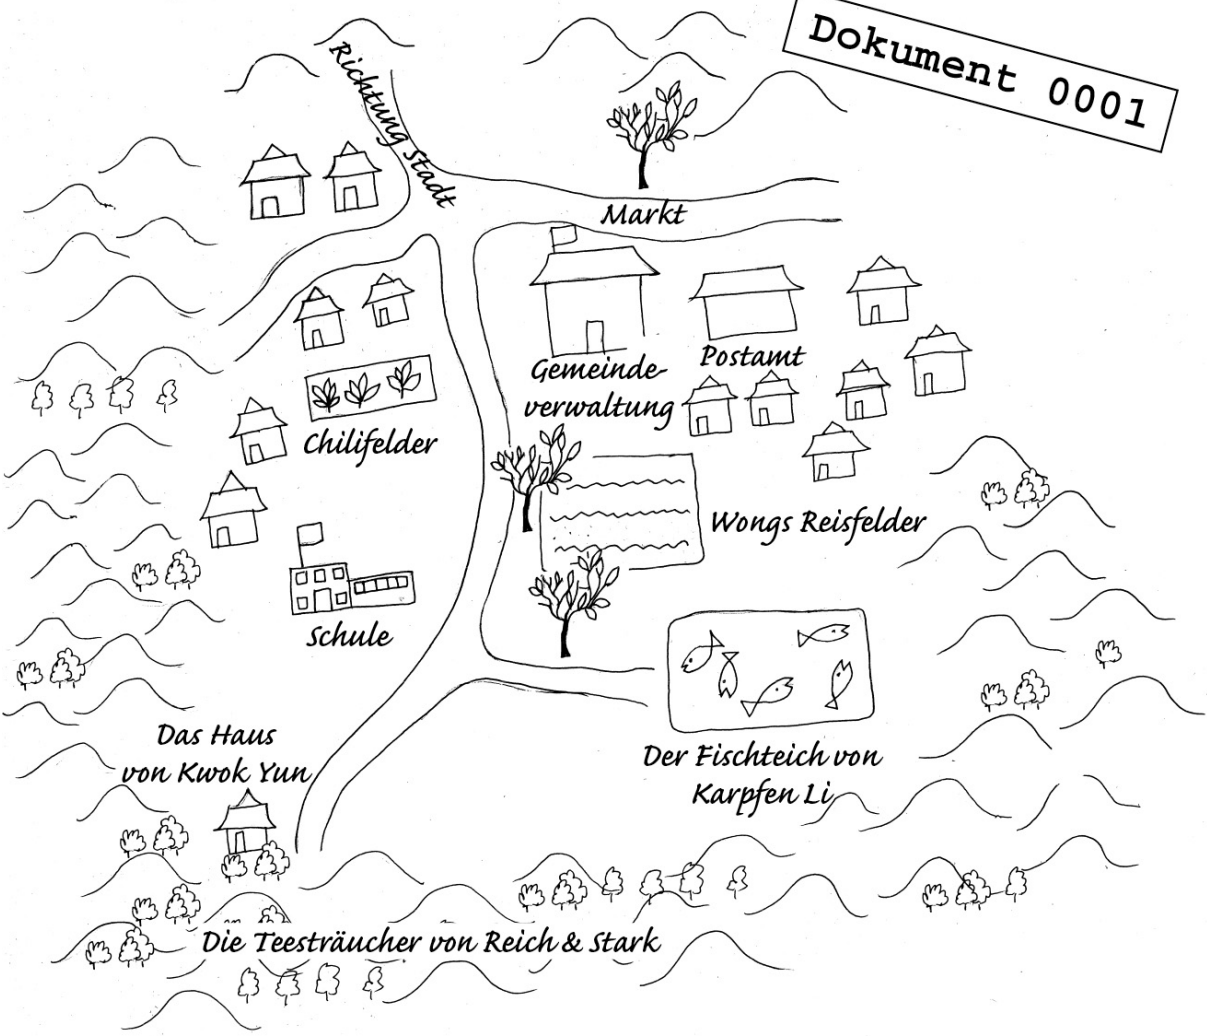 Dokument 0001
Richtung Stadt
Markt
Gemeinde-
verwaltung
Postamt
Chilifelder
Wongs Reisfelder
Schule
Das Haus
von Kwok Yun
Der Fischteich von
Karpfen Li
Die Teesträucher von Reich & Stark